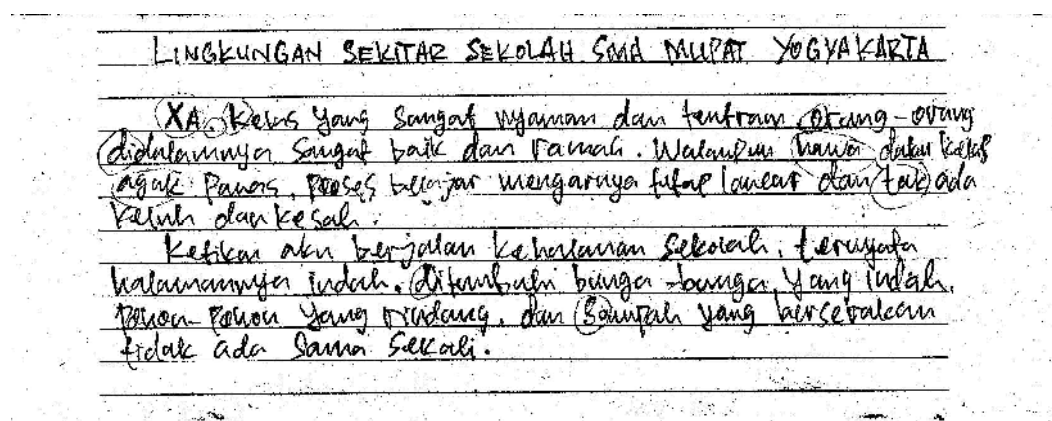 LINGKUNGAN SEKITAR SEKOLAH SMA MUPAT YOGYAKARTA
XA, Kelas yang sangat nyaman dan tentram orang-orang
didalamnya sangat baik dan ramah. Walaupun hawa dalam kelas
agak panas, proses belajar mengarnya tetap lancar dan tak ada
keluh dan kesah.
Ketika aku berjalan kehalaman sekolah, ternyata
halamannya indah. ditumbuhi bunga-bunga yang indah,
pohon-pohon yang rindang, dan sampah yang berserakan
tidak ada sama sekali.